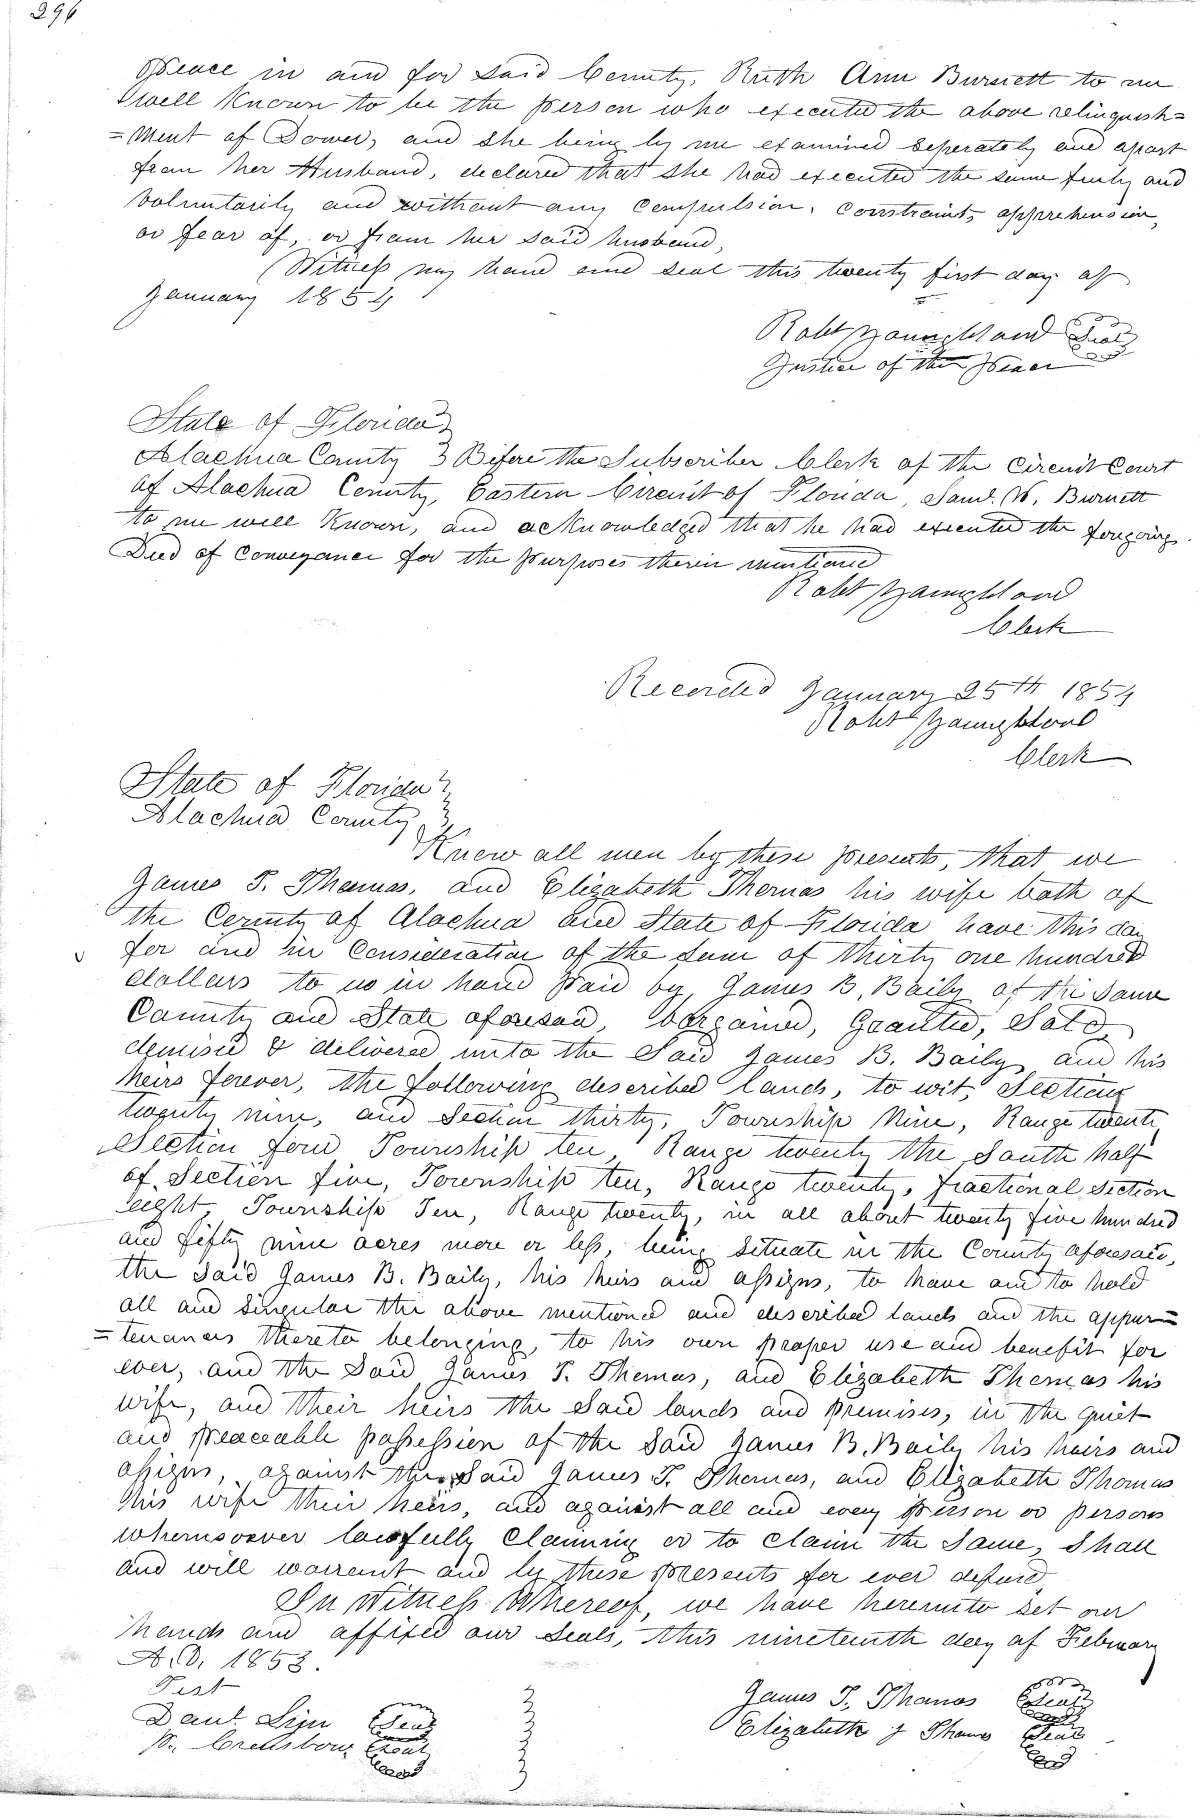 296
Peace in and for said County, Ruth Ann Burnett to me
well Known to be the person who executed the above relinquish=
=ment of Dower, and she being by me examined seperately and apart
from her Husband, declared that she had executed the same freely and
voluntarily and without any compulsion, constraint, apprehension,
or fear of, or from her said husband,
Witness my hand and seal this twenty first day of
January 1854
Robt Youngblood Seal
Justice of the Peace
State of Florida
Alachua County } Before the Subscriber Clerk of the Circuit Court
of Alachua County, Eastern Circuit of Florida, Saml. W. Burnett
to me well Known, and acknowledged that he had executed the foregoing
Deed of Conveyance for the purposes therein mentioned
Robt Youngblood
Clerk
Recorded January 25th 1854
Robt Youngblood
Clerk
State of Florida }
Alachua County }
Know all men by these presents, that we
James T. Thomas, and Elizabeth Thomas his wife both of
the County of Alachua and State of Florida have this day
for and in Consideration of the sum of thirty one hundred
dollars to us in hand paid by James B. Baily of the Same
County and State aforesaid, bargained, Granted, Sold,
demised & delivered unto the Said James B. Baily, and his
heirs forever, the following described lands, to wit, Section
twenty nine, and Section thirty, Township Nine, Range twenty
Section four Township ten, Range twenty the South half
of Section five, Township ten, Range twenty, fractional Section
eight, Township Ten, Range twenty, in all about twenty five hundred
and fifty nine acres more or less, being Situate in the County aforesaid,
the Said James B. Baily, his heirs and assigns, to have and to hold
all and Singular the above mentioned and described lands and the appur=
=tenances thereto belonging, to his own proper use and benefit for
ever, and the Said James T. Thomas, and Elizabeth Thomas his
wife, and their heirs the Said lands and premises, in the quiet
and Peaceable possession of the Said James B. Baily his heirs and
assigns, against the Said James T. Thomas, and Elizabeth Thomas
his wife their heirs, and against all and every person or persons
whomsoever lawfully Claiming or to Claim the Same, Shall
and will warrant and by these presents for ever defend,
In Witness Whereof, we have hereunto set our
hands and affixed our Seals, this nineteenth day of February
A.D. 1853.
Test
James T. Thomas Seal
Danl. Sign Seal
Elizabeth J Thomas Seal
Seal